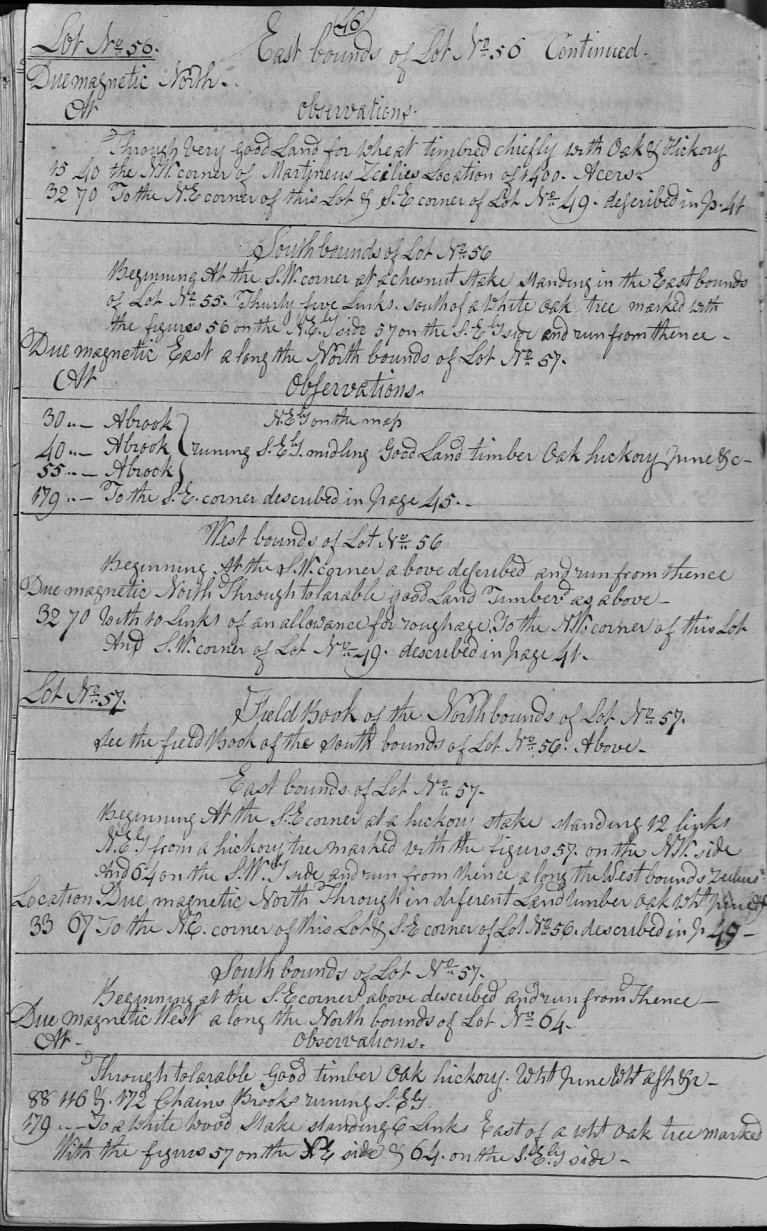 46
Lot No. 56. East bounds of Lot No. 56 Continued.
Due magnetic North.
At Observations.
Through very good Land for wheat timbred chiefly with Oak & Hickory
15 40 the N.W. corner of Martineus Location of 1400. Acers.
32 70 To the N.E corner of this Lot & S.E corner of Lot No. 49. described in p. 41
South bounds of Lot No. 56
Beginning At the S.W. corner at a chesnut stake standing in the East bounds
of Lot No. 55. Thirty five Links. south of a White oak tree marked with
the figures 56 on the N.E.ly side 57 on the S.E.ly side and run from thence -
Due magnetic East a long the North bounds of Lot No. 57.
At Observations.
30 .. - A brook N.E.ly on the map
40 .. - A brook runing S.E.ly. midling Good Land timber Oak hickory pine &c -
55 .. - A brook
179 .. - To the S.E. corner described in page 45. -
West bounds of Lot No. 56
Beginning At the S.W. corner above described and run from thence
Due magnetic North Through tolarable good Land Timberd as above -
32 70 With 10 Links of an allowance for roughage. To the N.W. corner of this Lot
And S.W. corner of Lot No. 49. described in page 41.
Lot No. 57. Field Book of the North bounds of Lot No. 57.
see the field Book of the south bounds of Lot No. 56. Above -
East bounds of Lot No. 57.
Beginning At the S.E corner at a hickory stake standing 12 links
N.E.ly from a hickory tree marked with the figurs 57. on the N.W. side
And 64 on the S.W.ly side and run from thence a long the West bounds
Location. Due magnetic North Through in diferent Land timber oak wht pine &c
33 67 To the N.E. corner of this Lot & S.E corner of Lot No. 56. described in p. 45 -
South bounds of Lot No. 57.
Beginning at the S.E corner above described and run from Thence -
Due magnetic West a long the North bounds of Lot No. 64.
At - Observations.
Through tolarable Good timber Oak hickory. Wht pine Wht ash &c -
88 116 & 172 Chains Brooks runing S.E.ly
179 .. - To a White wood Stake standing 6 Links East of a wht oak tree marked
With the figurs 57 on the N.E side & 64. on the S.E.ly side -